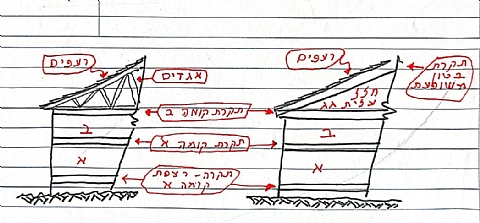 רעפים
אגדים
רעפים
תקרת
בטון
משופעת
חלל
עליית גג
תקרת קומה ב
ב
ב
תקרת קומה א
א
א
תקרה - רצפת
קומה א